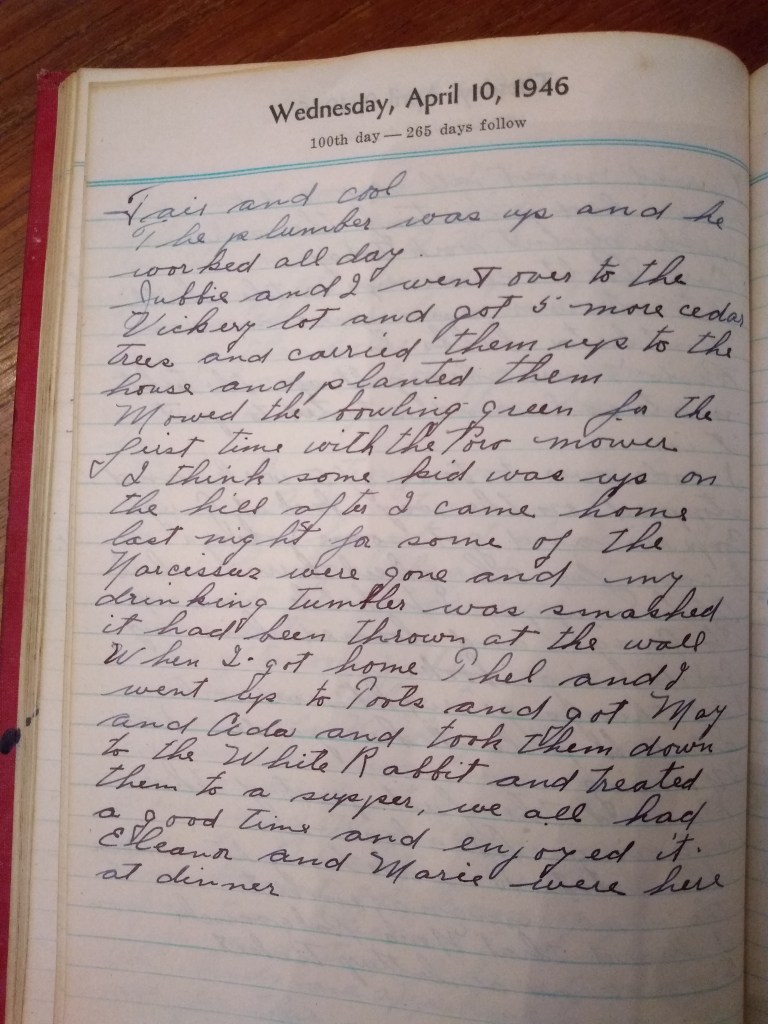 Wednesday, April 10, 1946
100th day — 265 days follow
Fair and cool
The plumber was up and he
worked all day.
Jubbie and I went over to the
Vickery lot and got 5 more cedar
trees and carried them up to the
house and planted them
Mowed the bowling green for the
first time with the mower
I think some kid was up on
the hill after I came home
last night for some of the
Narcissus were gone and my
drinking tumbler was smashed
it had been thrown at the wall
When I got home Phel and I
went up to Pools and got May
and Ada and took them down
to the White Rabbit and treated
them to a supper, we all had
a good time and enjoyed it.
Elleanor and Marie were here
at dinner